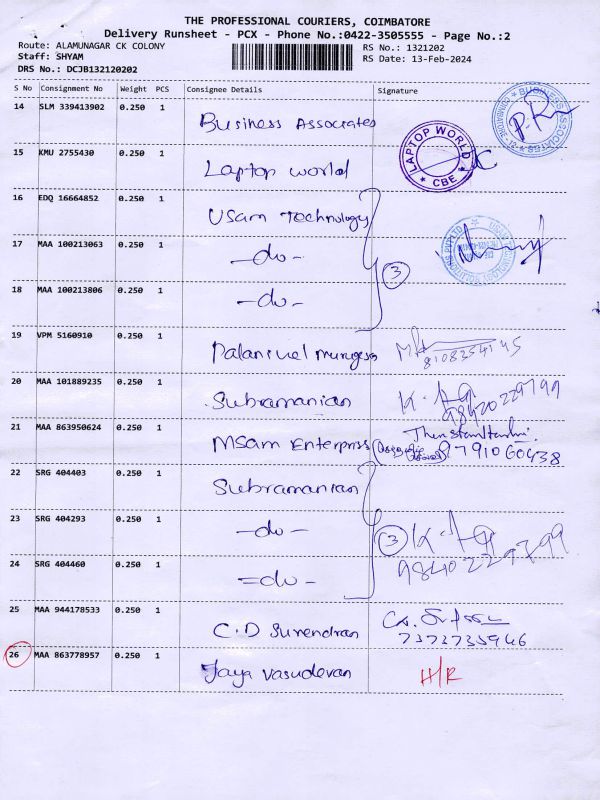 THE PROFESSIONAL COURIERS, COIMBATORE
Delivery Runsheet - PCX - Phone No.:0422-3505555 - Page No.:2
Route: ALAMUNAGAR CK COLONY
RS No.: 1321202
Staff: SHYAM
RS Date: 13-Feb-2024
DRS No.: DCJB132120202
S No Consignment No Weight PCS Consignee Details Signature
14 SLM 339413902 0.250 1 Business Associates
15 KMU 2755430 0.250 1 Laptop world
LAPTOP WORLD
* CBE *
16 EDQ 16664852 0.250 1 Usam Technology
17 MAA 100213063 0.250 1 -do-
3
18 MAA 100213806 0.250 1 -do-
19 VPM 5160910 0.250 1 Palanivel Murugesa
20 MAA 101889235 0.250 1 Subramanian
9840229799
21 MAA 863950624 0.250 1 MSam Enterpriss
8791060438
22 SRG 404403 0.250 1 Subramanian
23 SRG 404293 0.250 1 -do-
3
24 SRG 404460 0.250 1 =do-
9840229799
25 MAA 944178533 0.250 1 C.D Surendran
7373735946
26 MAA 863778957 0.250 1 Jaya vasudevan H/R